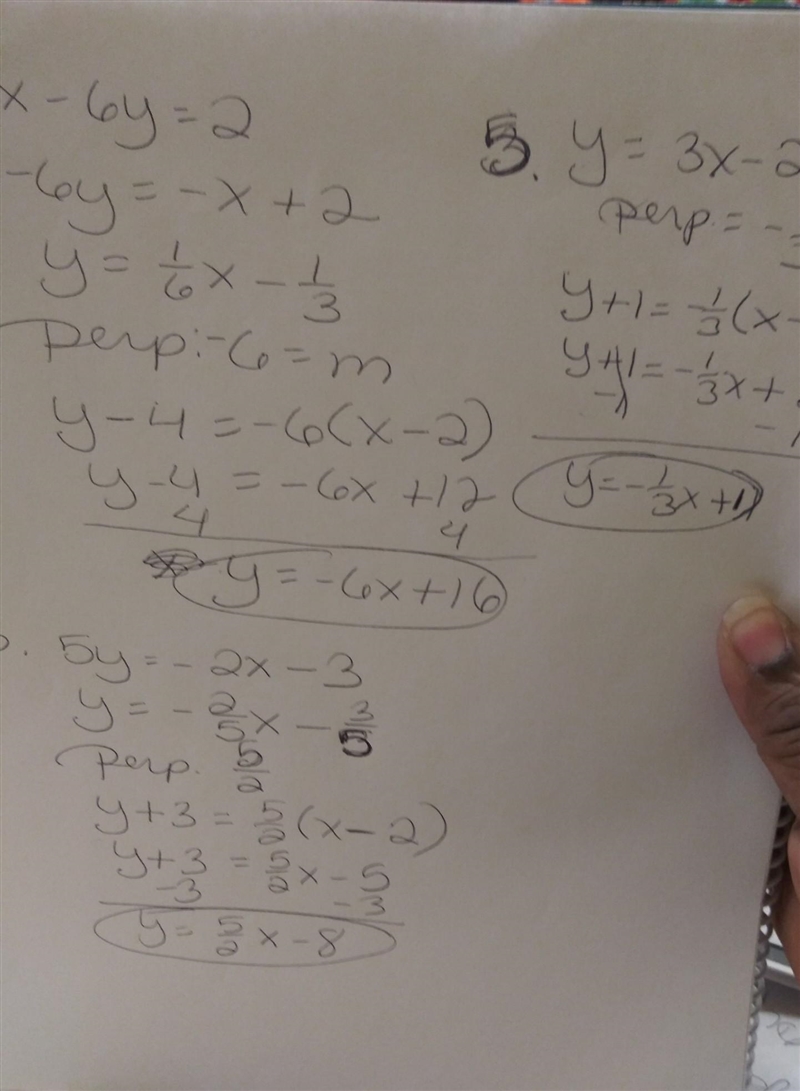 x - 6y = 2
-6y = -x + 2
y = 1/6 x - 1/3
perp: -6 = m
y - 4 = -6(x - 2)
y - 4 = -6x + 12
4 4
y = -6x + 16
5y = -2x - 3
y = -2/5 x - 3/5
Perp. 5/2
y + 3 = 5/2 (x - 2)
y + 3 = 5/2 x - 5
-3 -3
y = 5/2 x - 8
5. y = 3x - 2
perp. = -
y + 1 = -1/3 (x -
y + 1 = -1/3 x +
-1 -1
y = -1/3 x + 1